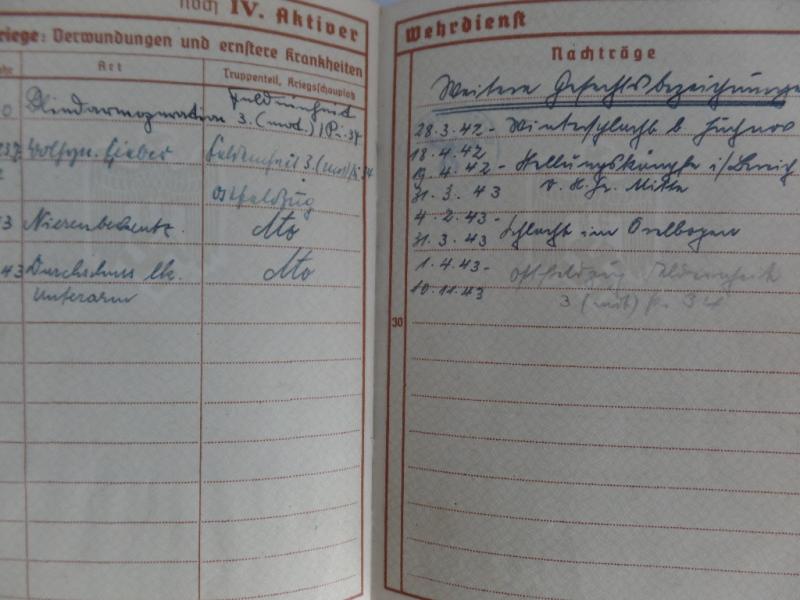 noch IV. Aktiver
riege: Verwundungen und ernstere Krankheiten
ahr Art Truppenteil, Kriegsschauplatz
0 Blinddarmoperation Feldeinheit
3. (mot.) / Pi. 34
Wolhyn. Fieber Feldeinheit 3. (mot)
Ostfeldzug
3 Nierenbeckentz. dto
43 Durchschuss lk. dto
Unterarm
Wehrdienst
Nachträge
Weitere Gefechtsbezeichnunge
28.3.42 - Winterschlacht b.
18.4.42
19.4.42 - Stellungskämpfe i/Bereich
31.3.43 d. H. Gr. Mitte
4.2.43 - Schlacht im Orelbogen
31.3.43
1.4.43 - Ostfeldzug Feldeinheit
10.11.43 3 (mot) Pi. 34
30